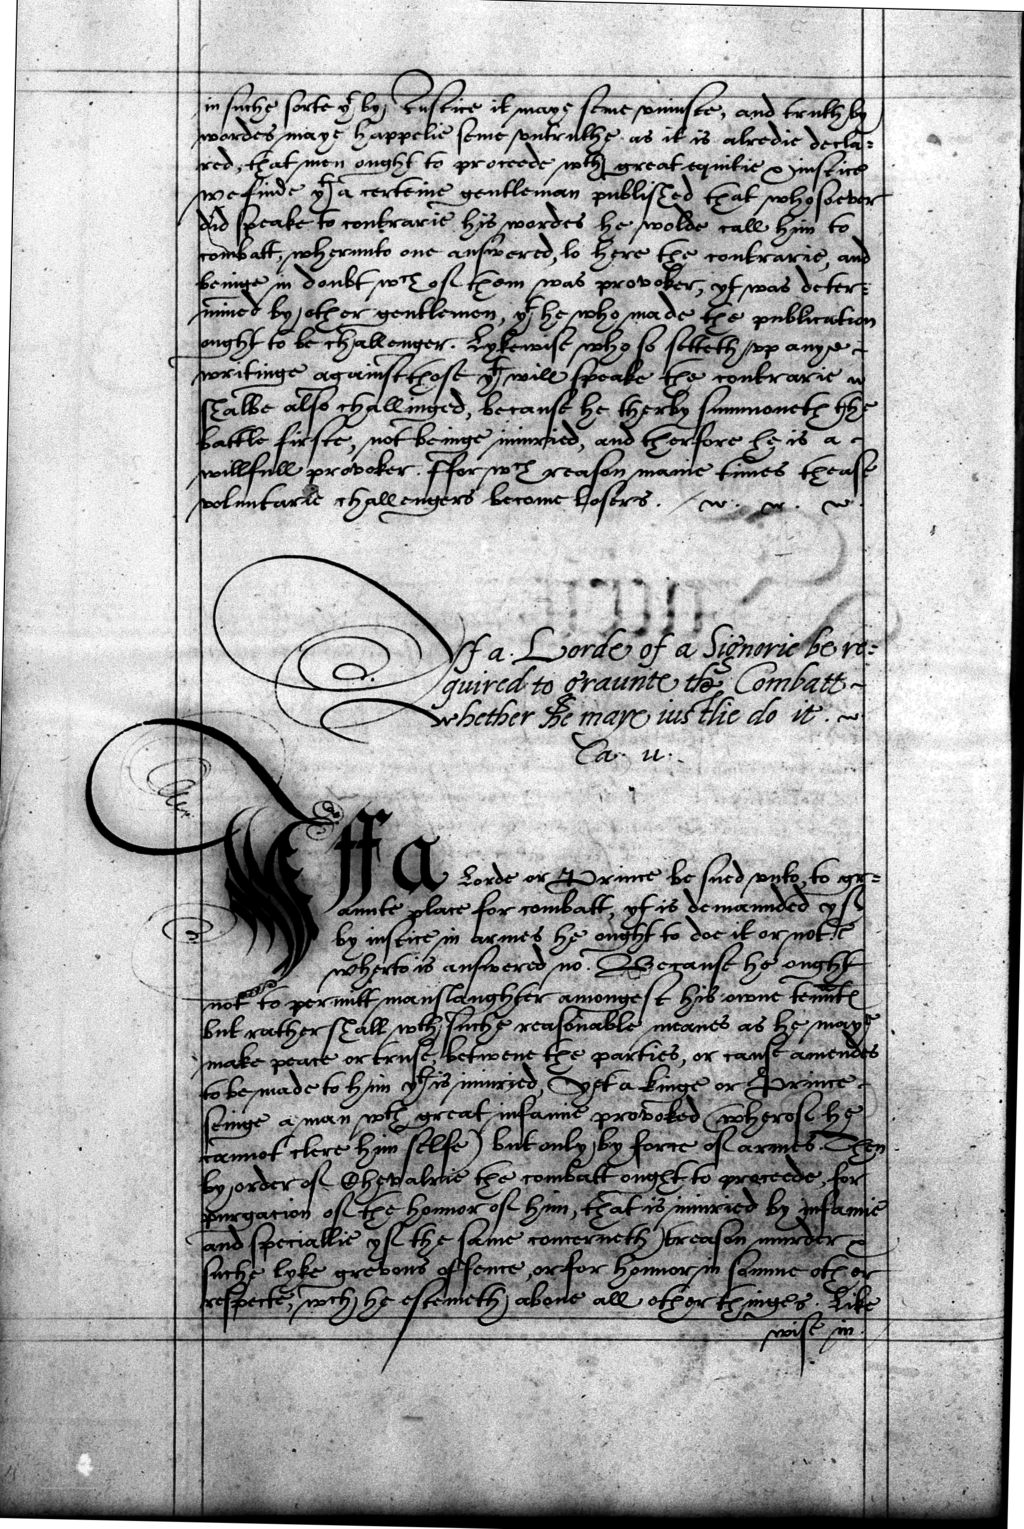 in suche sorte yt by Iustice it maye seme uniuste, and truth by
wordes maye happelie seme untruthe as it is alredie decla=
red, that men ought to proceede wth great equitie & iustice
we finde yt a certeine gentleman published that whosoever
did speake to contrarie his wordes he wolde call him to
combatt, wherunto one answered, lo here the contrarie, and
beinge in doubt wch of them was provoker, yt was deter=
mined by other gentlemen, yt he who made the publication
ought to be challenger. Lykewise who so setteth up anye
writinge against those yt will speake the contrarie
shalbe also challinged, because he therby summoneth the
battle firste, not beinge iniuried, and therfore he is a
willfull provoker. ffor wch reason manie times thease
voluntarie challengers become losers.
Yf a Lorde of a Signorie be re=
quired to graunte the Combatt
whether he maye iustlie do it.
Ca. u.
Yff a Lorde or Prince be sued unto, to gr=
aunte place for combatt, yt is demaunded yf
by iustice in armes he ought to doe it or not
wherto is answered no. Because he ought
not to permitt manslaughter amongest his owne tennts
but rather shall wth suche reasonable meanes as he maye
make peace or truse, betwene the parties, or cause amendes
to be made to him yt is iniuried, Yet a kinge or Prince
seinge a man wth great infamie provoked (wherof he
cannot clere him selfe) but only by force of armes. Then
by order of Chevalrie the combatt ought to proceede, for
purgacion of the honnor of him, that is iniuried by infamie
and speciallie yf the same concerneth treason murder or
suche lyke grevous offence, or for honnor in somme other
respecte, wch he estemeth above all other thinges. Like
wise in